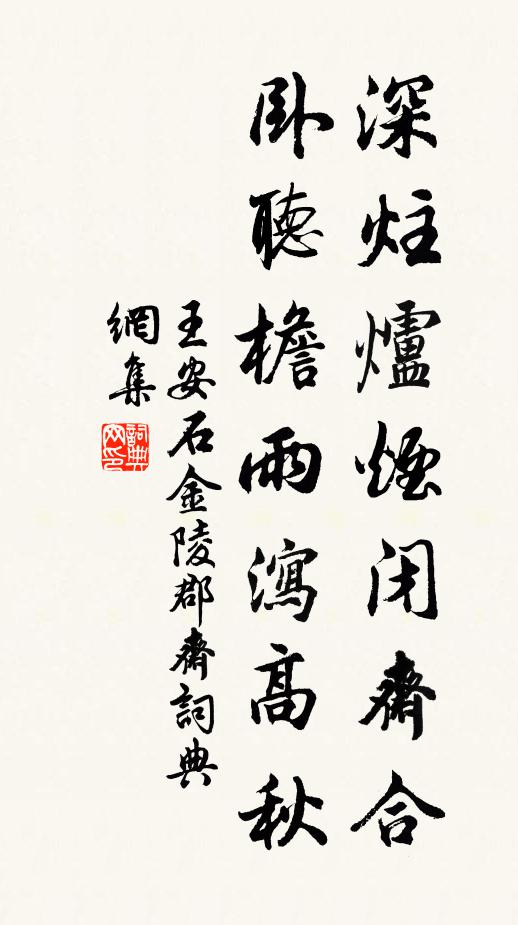 深炷爐煙闭齋合
卧聽檐雨瀉高秋
王安石金陵郡齋詞典
網集
詞典
网印